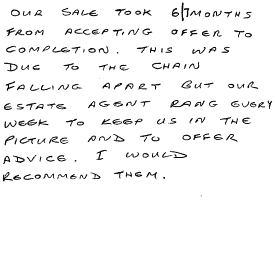 OUR SALE TOOK 6/7 MONTHS
FROM ACCEPTING OFFER TO
COMPLETION. THIS WAS
DUE TO THE CHAIN
FALLING APART BUT OUR
ESTATE AGENT RANG EVERY
WEEK TO KEEP US IN THE
PICTURE AND TO OFFER
ADVICE. I WOULD
RECOMMEND THEM.